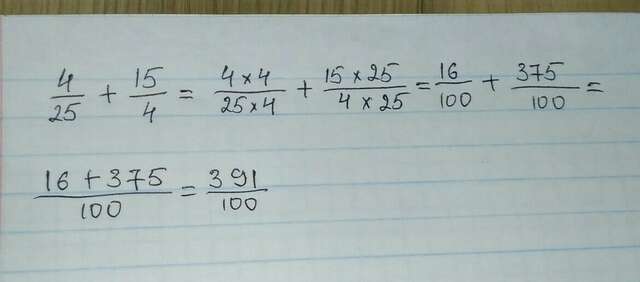 4/25 + 15/4 = 4×4/25×4 + 15×25/4×25 = 16/100 + 375/100 =
16+375/100 = 391/100